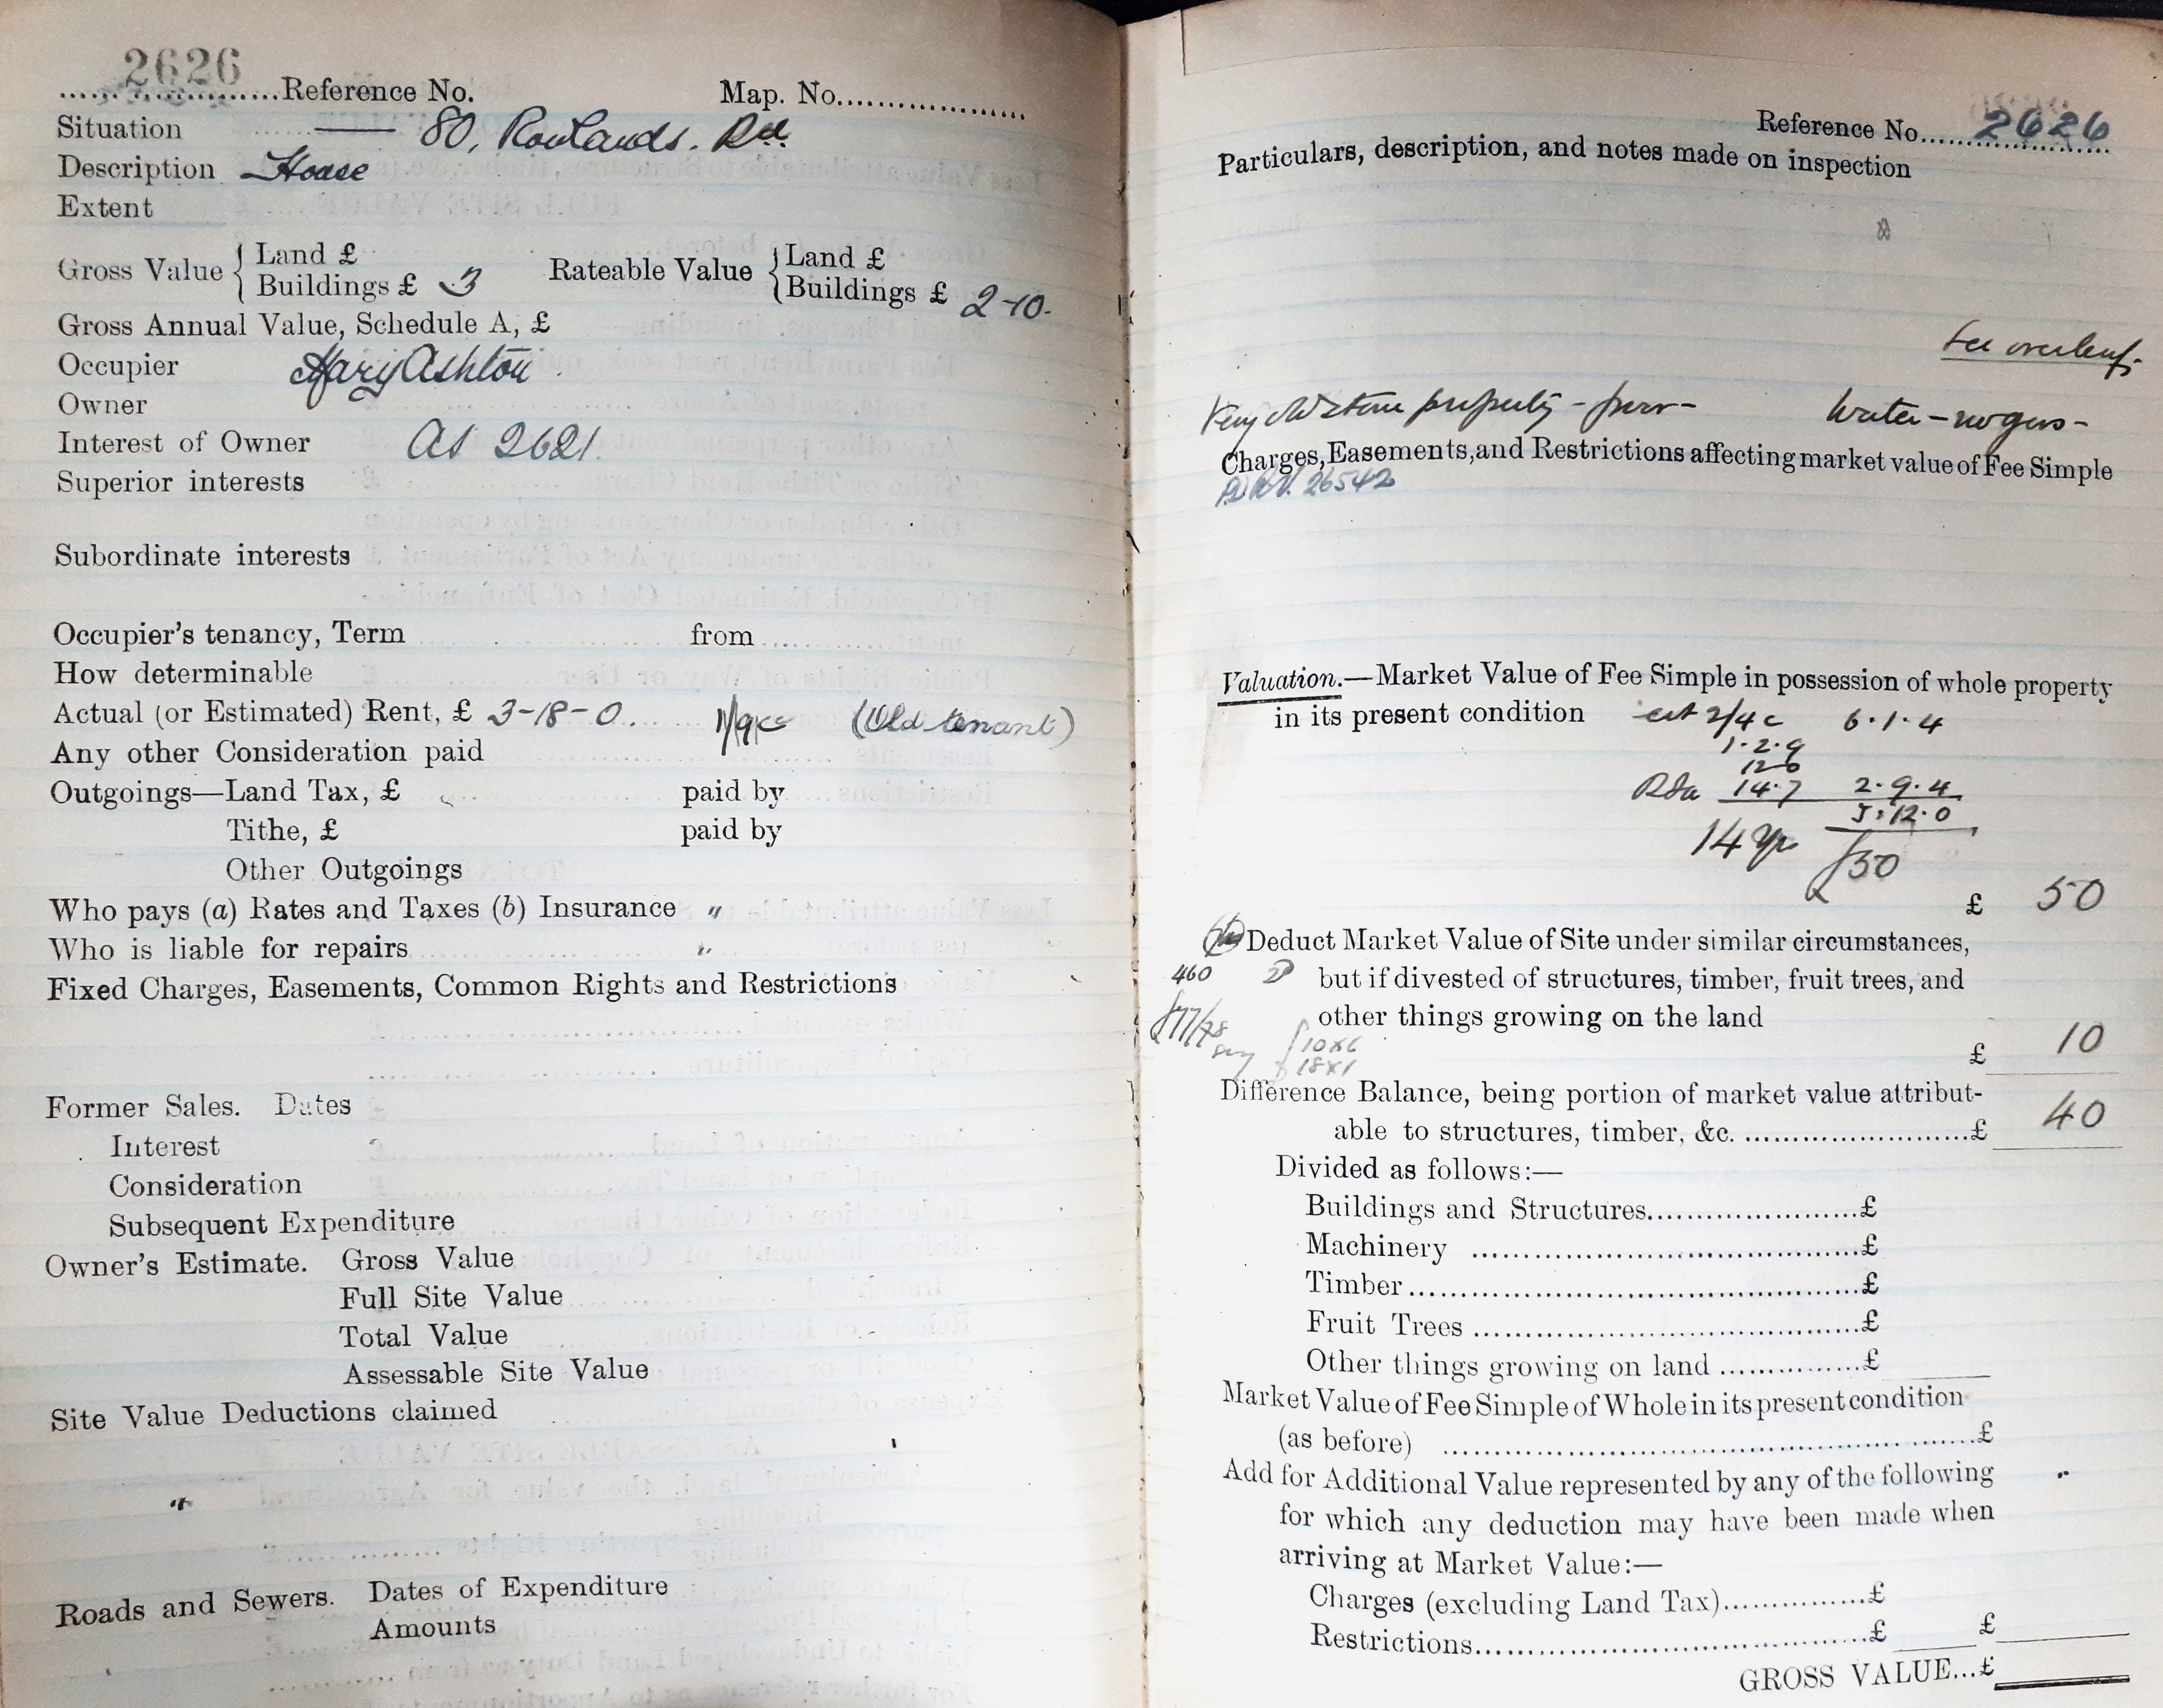 2626
Reference No. Map. No.
Situation — 80, Rowlands. Rd.
Description House
Extent
Gross Value { Land £ Rateable Value { Land £
Buildings £ 3 Buildings £ 2-10-
Gross Annual Value, Schedule A, £
Occupier Mary Ashton
Owner
Interest of Owner As 2621.
Superior interests
Subordinate interests
Occupier's tenancy, Term from
How determinable
Actual (or Estimated) Rent, £ 3-18-0. (Old tenant)
Any other Consideration paid
Outgoings—Land Tax, £ paid by
Tithe, £ paid by
Other Outgoings
Who pays (a) Rates and Taxes (b) Insurance "
Who is liable for repairs "
Fixed Charges, Easements, Common Rights and Restrictions
Former Sales. Dates
Interest
Consideration
Subsequent Expenditure
Owner's Estimate. Gross Value
Full Site Value
Total Value
Assessable Site Value
Site Value Deductions claimed
"
Roads and Sewers. Dates of Expenditure
Amounts
Reference No. 2626
Particulars, description, and notes made on inspection
See overleaf.
Very old stone property - poor - Water - no gas -
Charges, Easements, and Restrictions affecting market value of Fee Simple
26542
Valuation.—Market Value of Fee Simple in possession of whole property
in its present condition est 2/4 6.1.4
1.2.9
12.6
14.7 2.9.4
3.12.0
14 yp £50
£ 50
Deduct Market Value of Site under similar circumstances,
460 but if divested of structures, timber, fruit trees, and
other things growing on the land
10x6
18x1
£ 10
Difference Balance, being portion of market value attribut-
able to structures, timber, &c. £ 40
Divided as follows:—
Buildings and Structures £
Machinery £
Timber £
Fruit Trees £
Other things growing on land £
Market Value of Fee Simple of Whole in its present condition
(as before) £
Add for Additional Value represented by any of the following
for which any deduction may have been made when
arriving at Market Value:—
Charges (excluding Land Tax) £
Restrictions £ £
GROSS VALUE...£